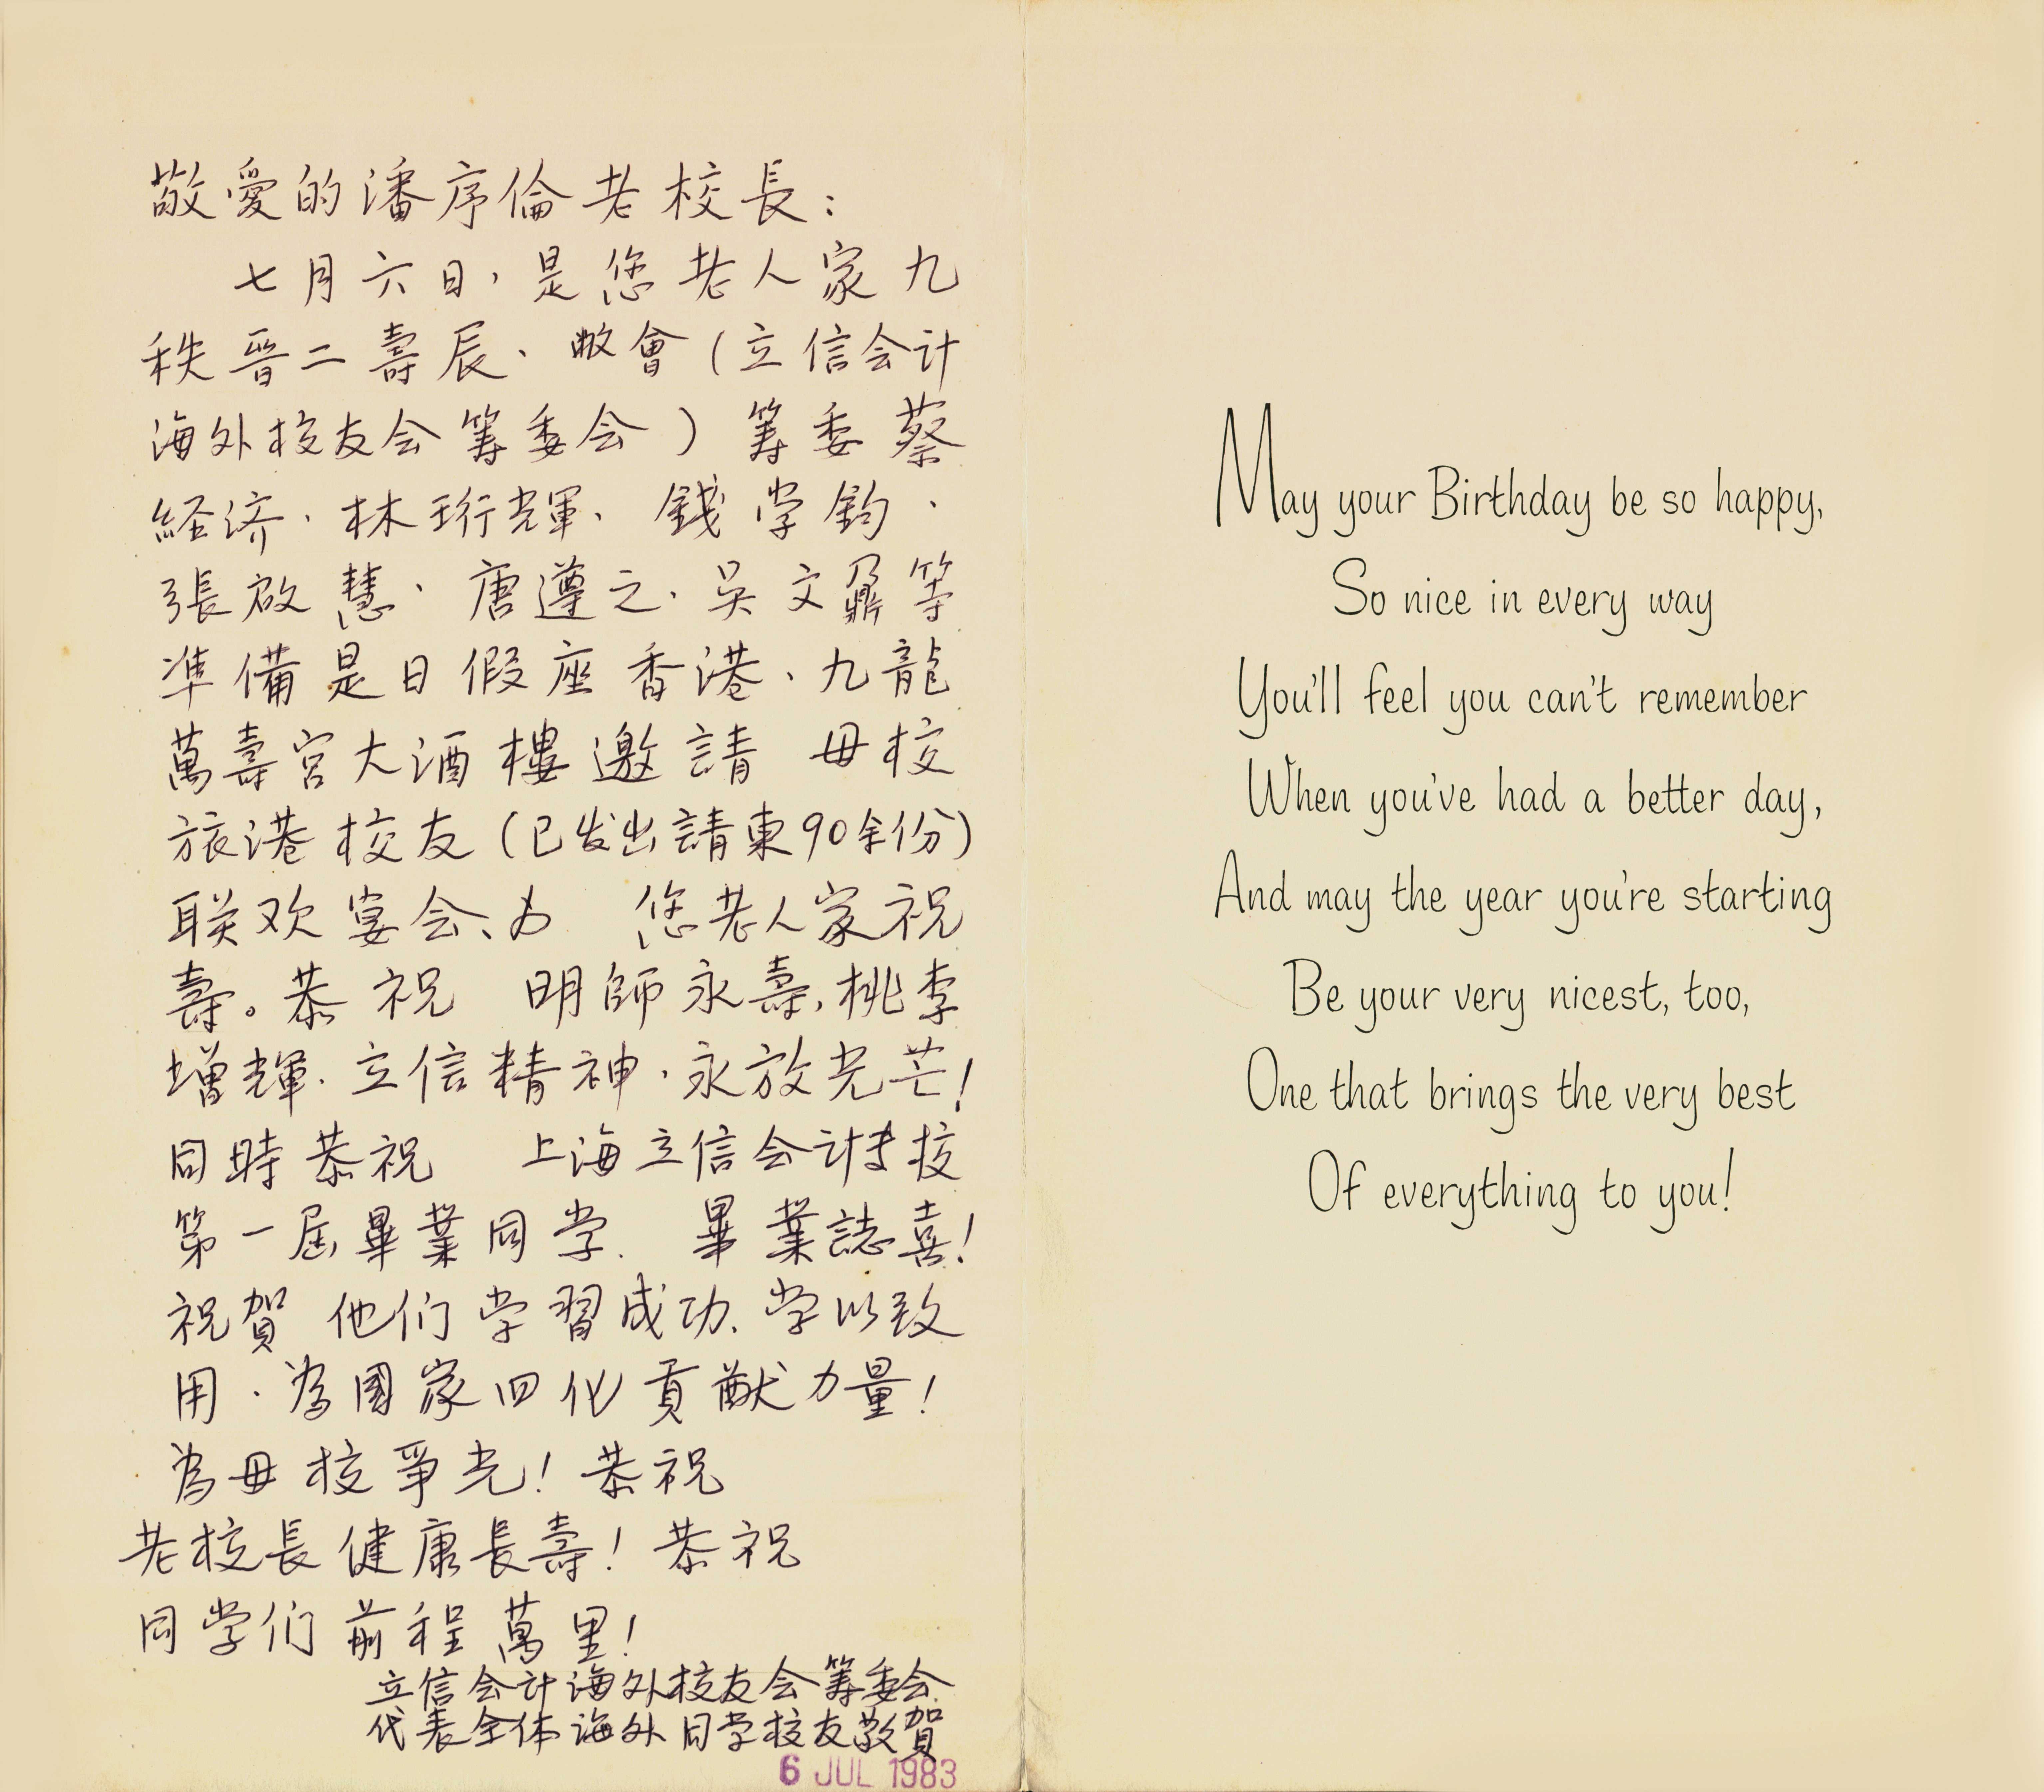 敬愛的潘序倫老校長：
七月六日，是您老人家九
秩晋二壽辰、敝會（立信会计
海外校友会筹委会）筹委蔡
経济、林珩輝、錢学鈞、
張啟慧、唐遵之、吳文鼐等
準備是日假座香港、九龍
萬壽宮大酒樓邀請 母校
旅港校友（已发出請柬90余份）
联欢宴会、为 您老人家祝
壽。恭祝 明師永壽，桃李
增輝、立信精神、永放光芒！
同時恭祝 上海立信会计专校
第一屆畢業同学、畢業誌喜！
祝賀 他们学習成功、学以致
用、為國家四化貢献力量！
為母校爭光！恭祝
老校長健康長壽！恭祝
同学们前程萬里！
立信会计海外校友会筹委会
代表全体海外同学校友敬賀
6 JUL 1983
May your Birthday be so happy,
So nice in every way
You'll feel you can't remember
When you've had a better day,
And may the year you're starting
Be your very nicest, too,
One that brings the very best
Of everything to you!